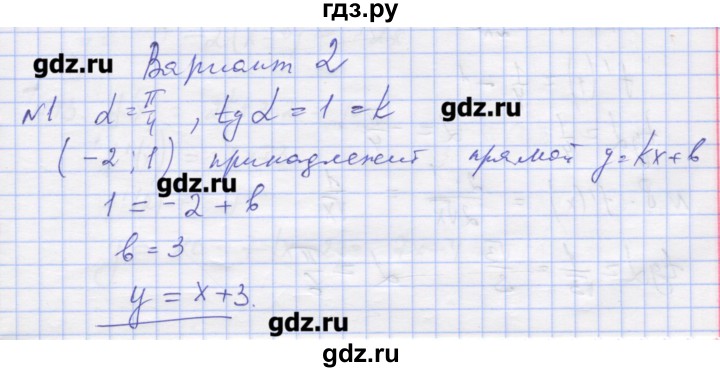 гдз.ру
gdz.ru
Вариант 2
№1 α = π/4 , tg α = 1 = k
gdz.ru
(-2 ; 1) принадлежит прямой y = kx + b
gdz.ru
1 = -2 + b
b = 3
y = x + 3.
gdz.ru
gdz.ru